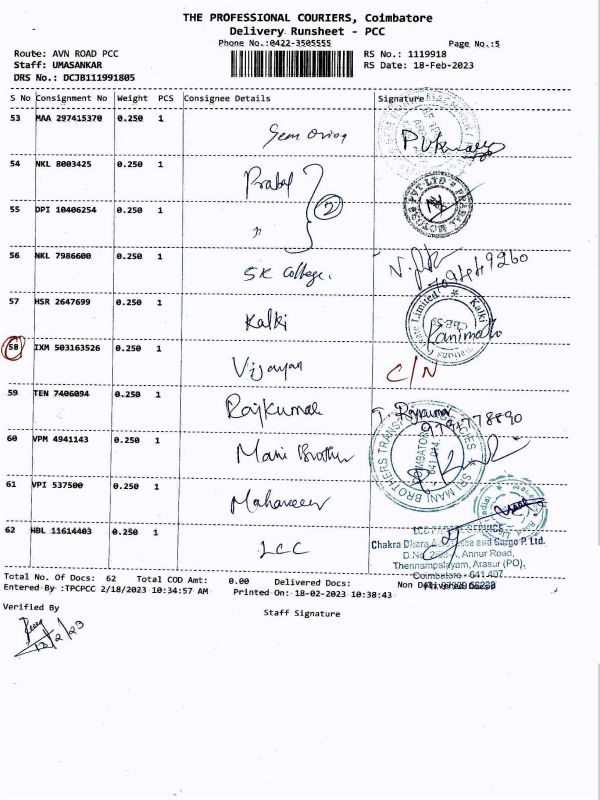 THE PROFESSIONAL COURIERS, Coimbatore
Delivery Runsheet - PCC
Phone No.:0422-3505555
Page No.:5
Route: AVN ROAD PCC
RS No.: 1119918
Staff: UMASANKAR
RS Date: 18-Feb-2023
DRS No.: DCJB111991805
S No Consignment No Weight PCS Consignee Details Signature
53 MAA 297415370 0.250 1
54 NKL 8003425 0.250 1 Prabal
(2)
55 DPI 10406254 0.250 1 "
56 NKL 7986600 0.250 1 SK College.
57 HSR 2647699 0.250 1 Kalki
58 IXM 503163526 0.250 1 Vijayan C/N
59 TEN 7406094 0.250 1 Rajkumar T. Rajkumar
60 VPM 4941143 0.250 1 Mani Brother
61 VPI 537500 0.250 1 Mahaveer
62 HBL 11614403 0.250 1 LCC
PRABAL MOTORS PVT LTD
Kalki
Private Limited
CBE-35
SRI MANI BROTHERS TRANS
COIMBATORE
641 014
Chakra Dhara
and Cargo P. Ltd.
Annur Road,
Thennampalayam, Arasur (PO),
Coimbatore - 641 407
Total No. Of Docs: 62 Total COD Amt: 0.00 Delivered Docs:
Entered By :TPCPCC 2/18/2023 10:34:57 AM Printed On: 18-02-2023 10:38:43
Verified By
Staff Signature